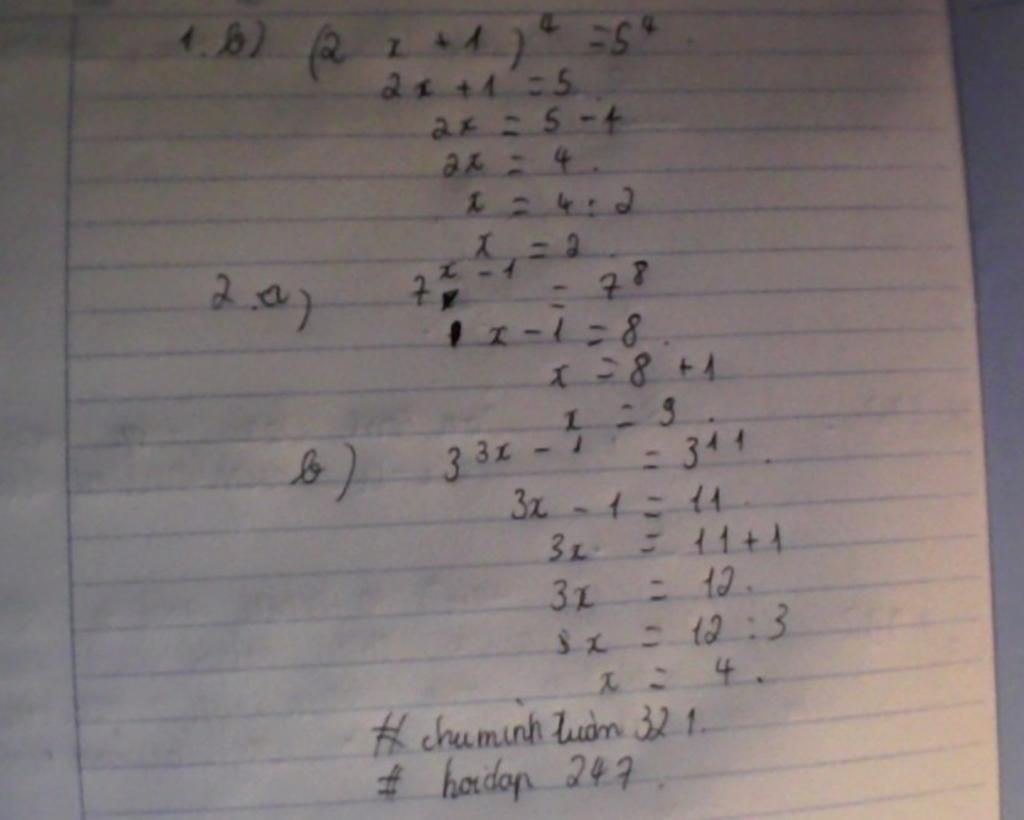 1. b) (2 x + 1)⁴ = 5⁴.
2x + 1 = 5.
2x = 5 - 1
2x = 4.
x = 4 : 2
x = 2.
2. a) 7ˣ⁻¹ = 7⁸
x - 1 = 8.
x = 8 + 1
x = 9.
b) 3³ˣ⁻¹ = 3¹¹.
3x - 1 = 11.
3x = 11 + 1
3x = 12.
x = 12 : 3
x = 4.
# chuminh tuân 321.
# hoidap 247.